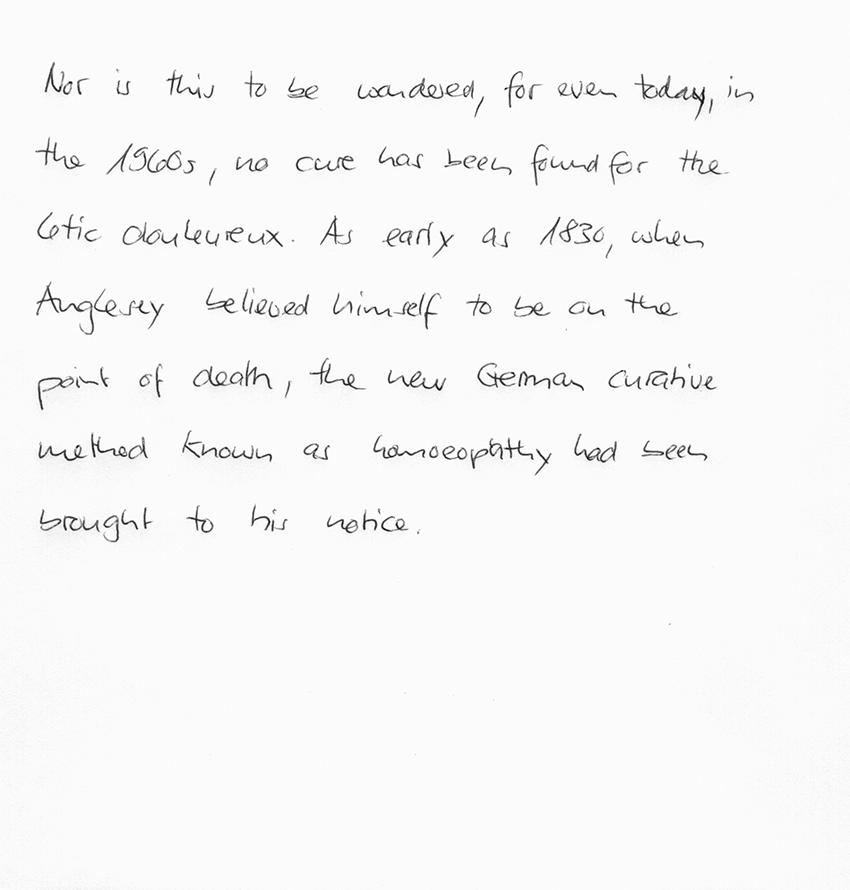 Nor is this to be wondered, for even today, in
the 1960s, no cure has been found for the
Cotic douleureux. As early as 1830, when
Anglesey believed himself to be on the
point of death, the new German curative
method known as homoeopathy had been
brought to his notice.